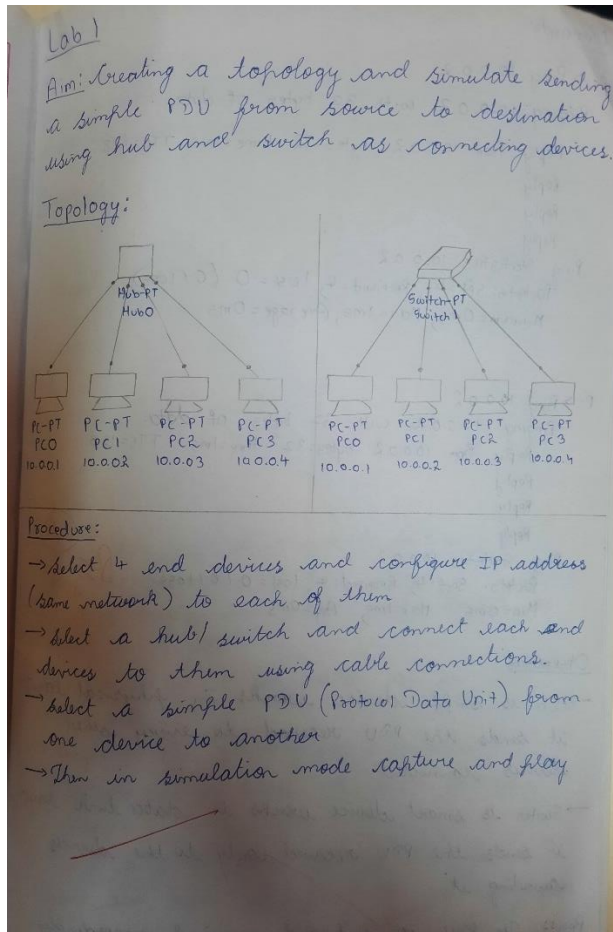 Lab 1
Aim: Creating a topology and simulate sending
a simple PDU from source to destination
using hub and switch as connecting devices.
Topology:
Hub-PT
Hub0
PC-PT PC-PT PC-PT PC-PT
PC0 PC1 PC2 PC3
10.0.0.1 10.0.0.2 10.0.0.3 10.0.0.4
Switch-PT
Switch1
PC-PT PC-PT PC-PT PC-PT
PC0 PC1 PC2 PC3
10.0.0.1 10.0.0.2 10.0.0.3 10.0.0.4
Procedure:
→ Select 4 end devices and configure IP address
(same network) to each of them
→ Select a hub/switch and connect each end
devices to them using cable connections.
→ Select a simple PDU (Protocol Data Unit) from
one device to another
→ Then in simulation mode capture and play